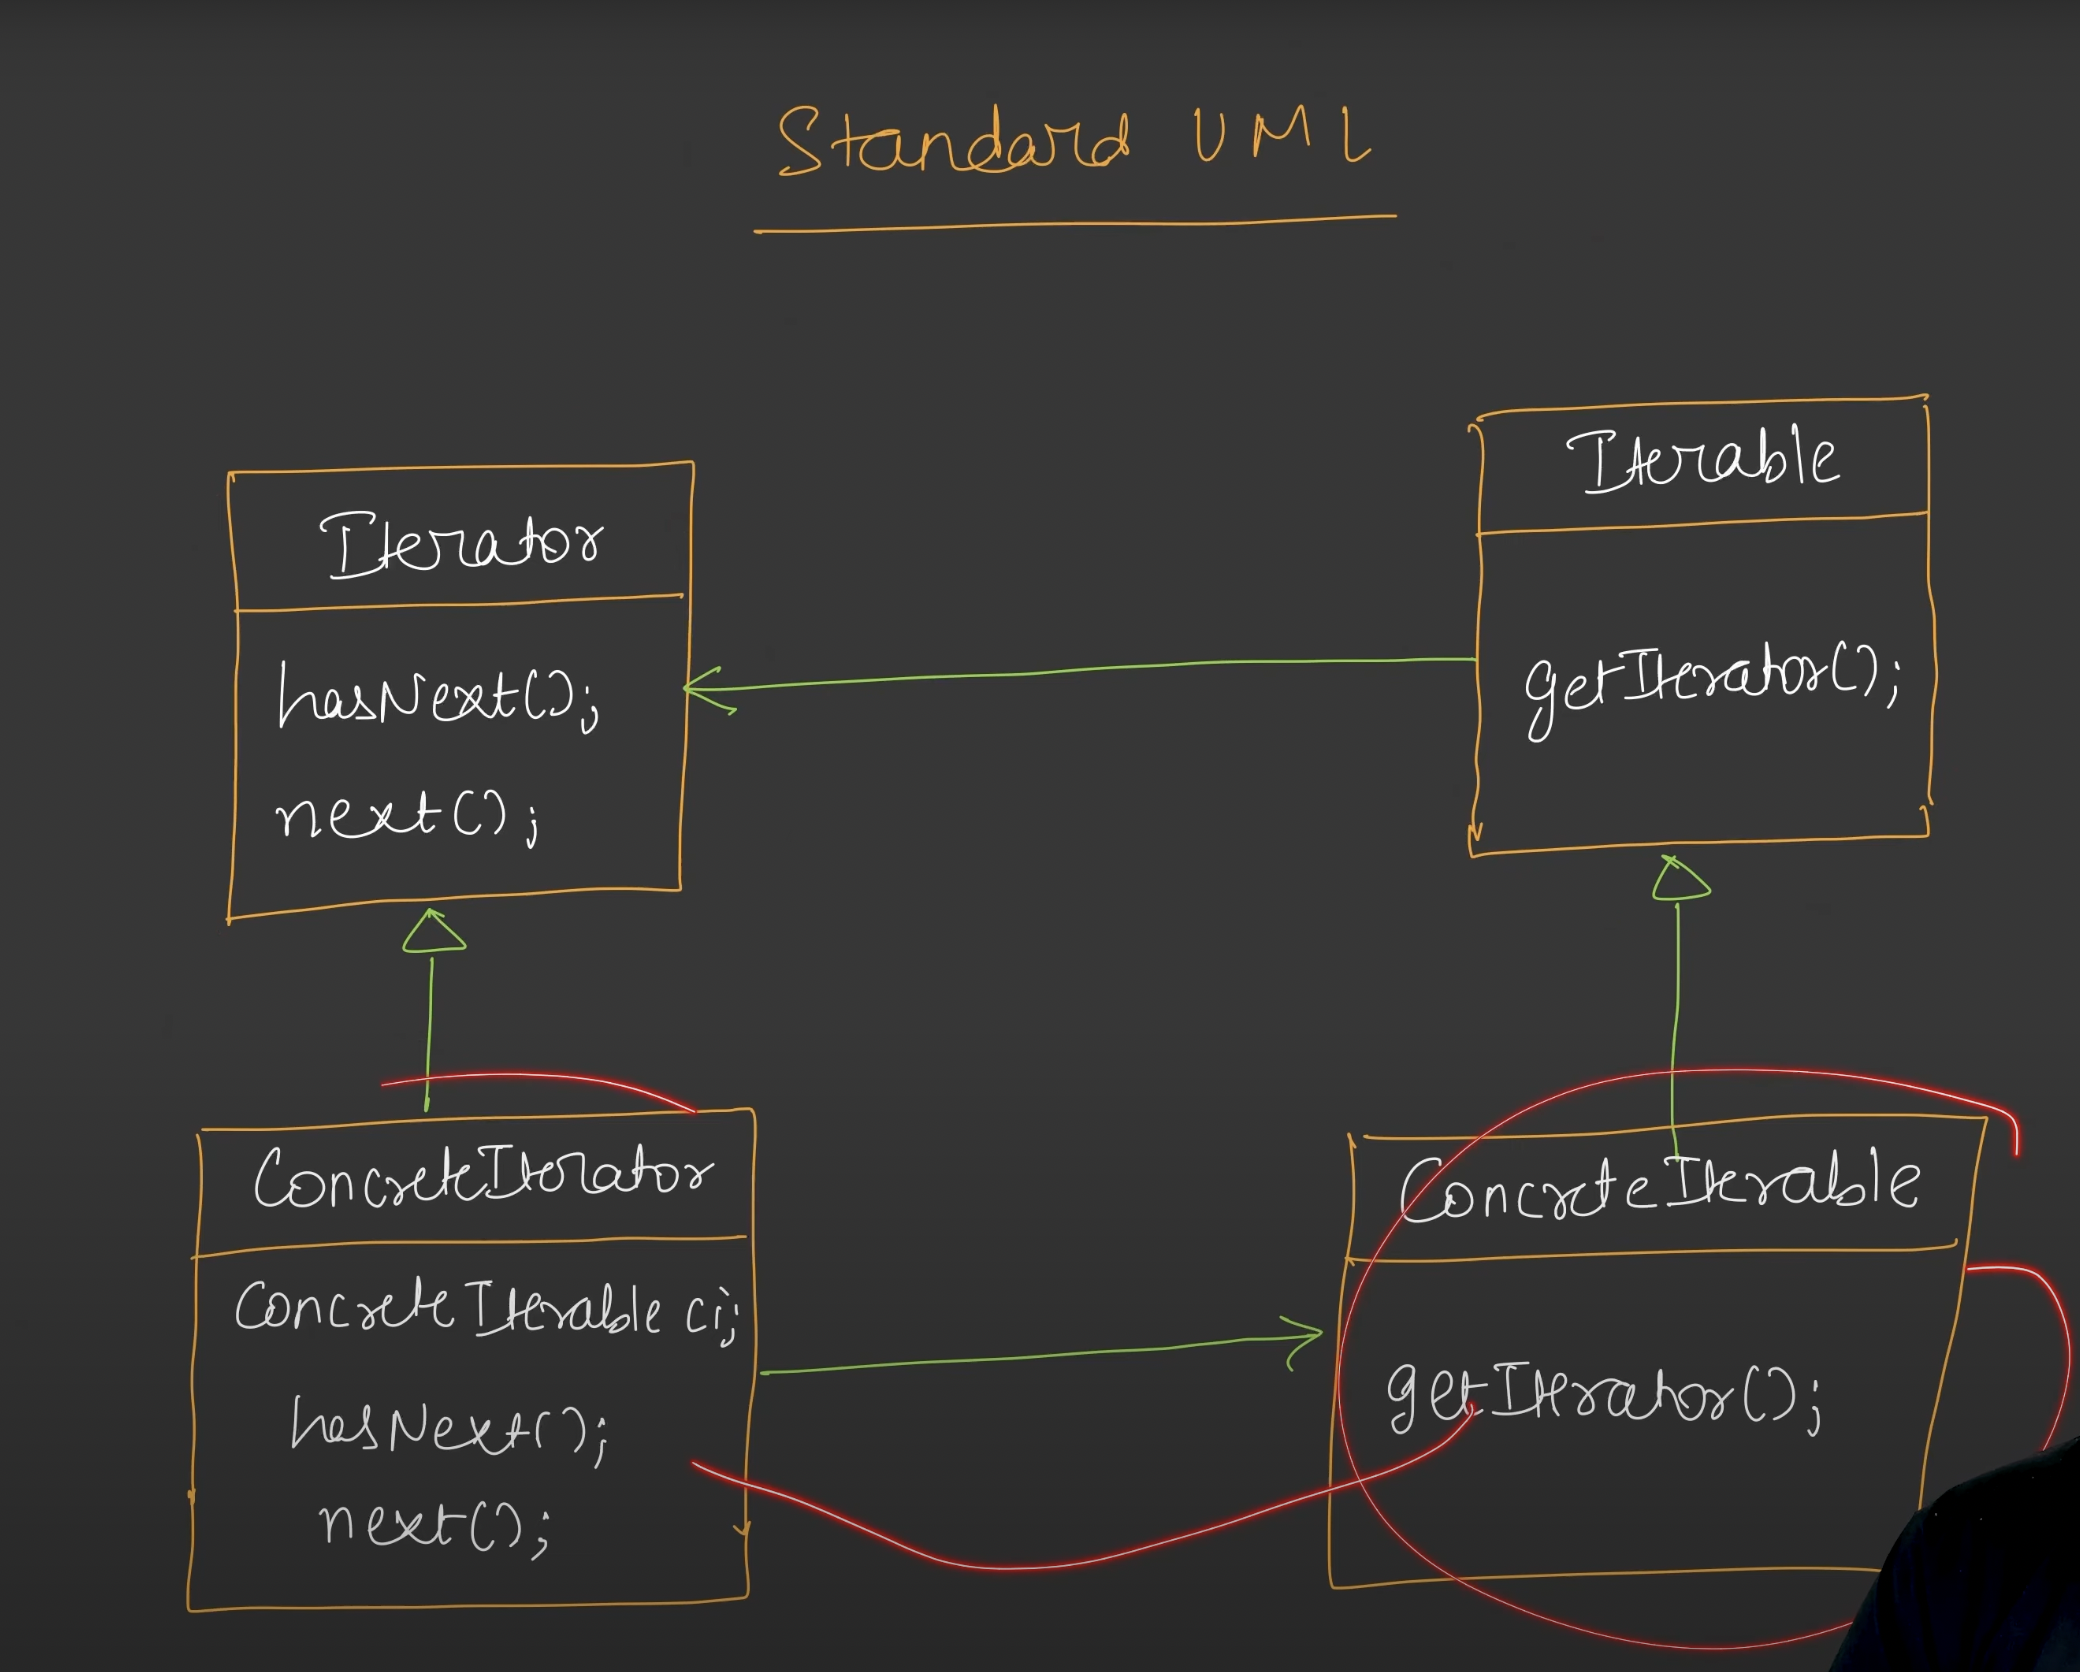 Standard UML
Iterator
hasNext();
next();
Iterable
getIterator();
ConcreteIterator
ConcreteIterable ci;
hasNext();
next();
ConcreteIterable
getIterator();